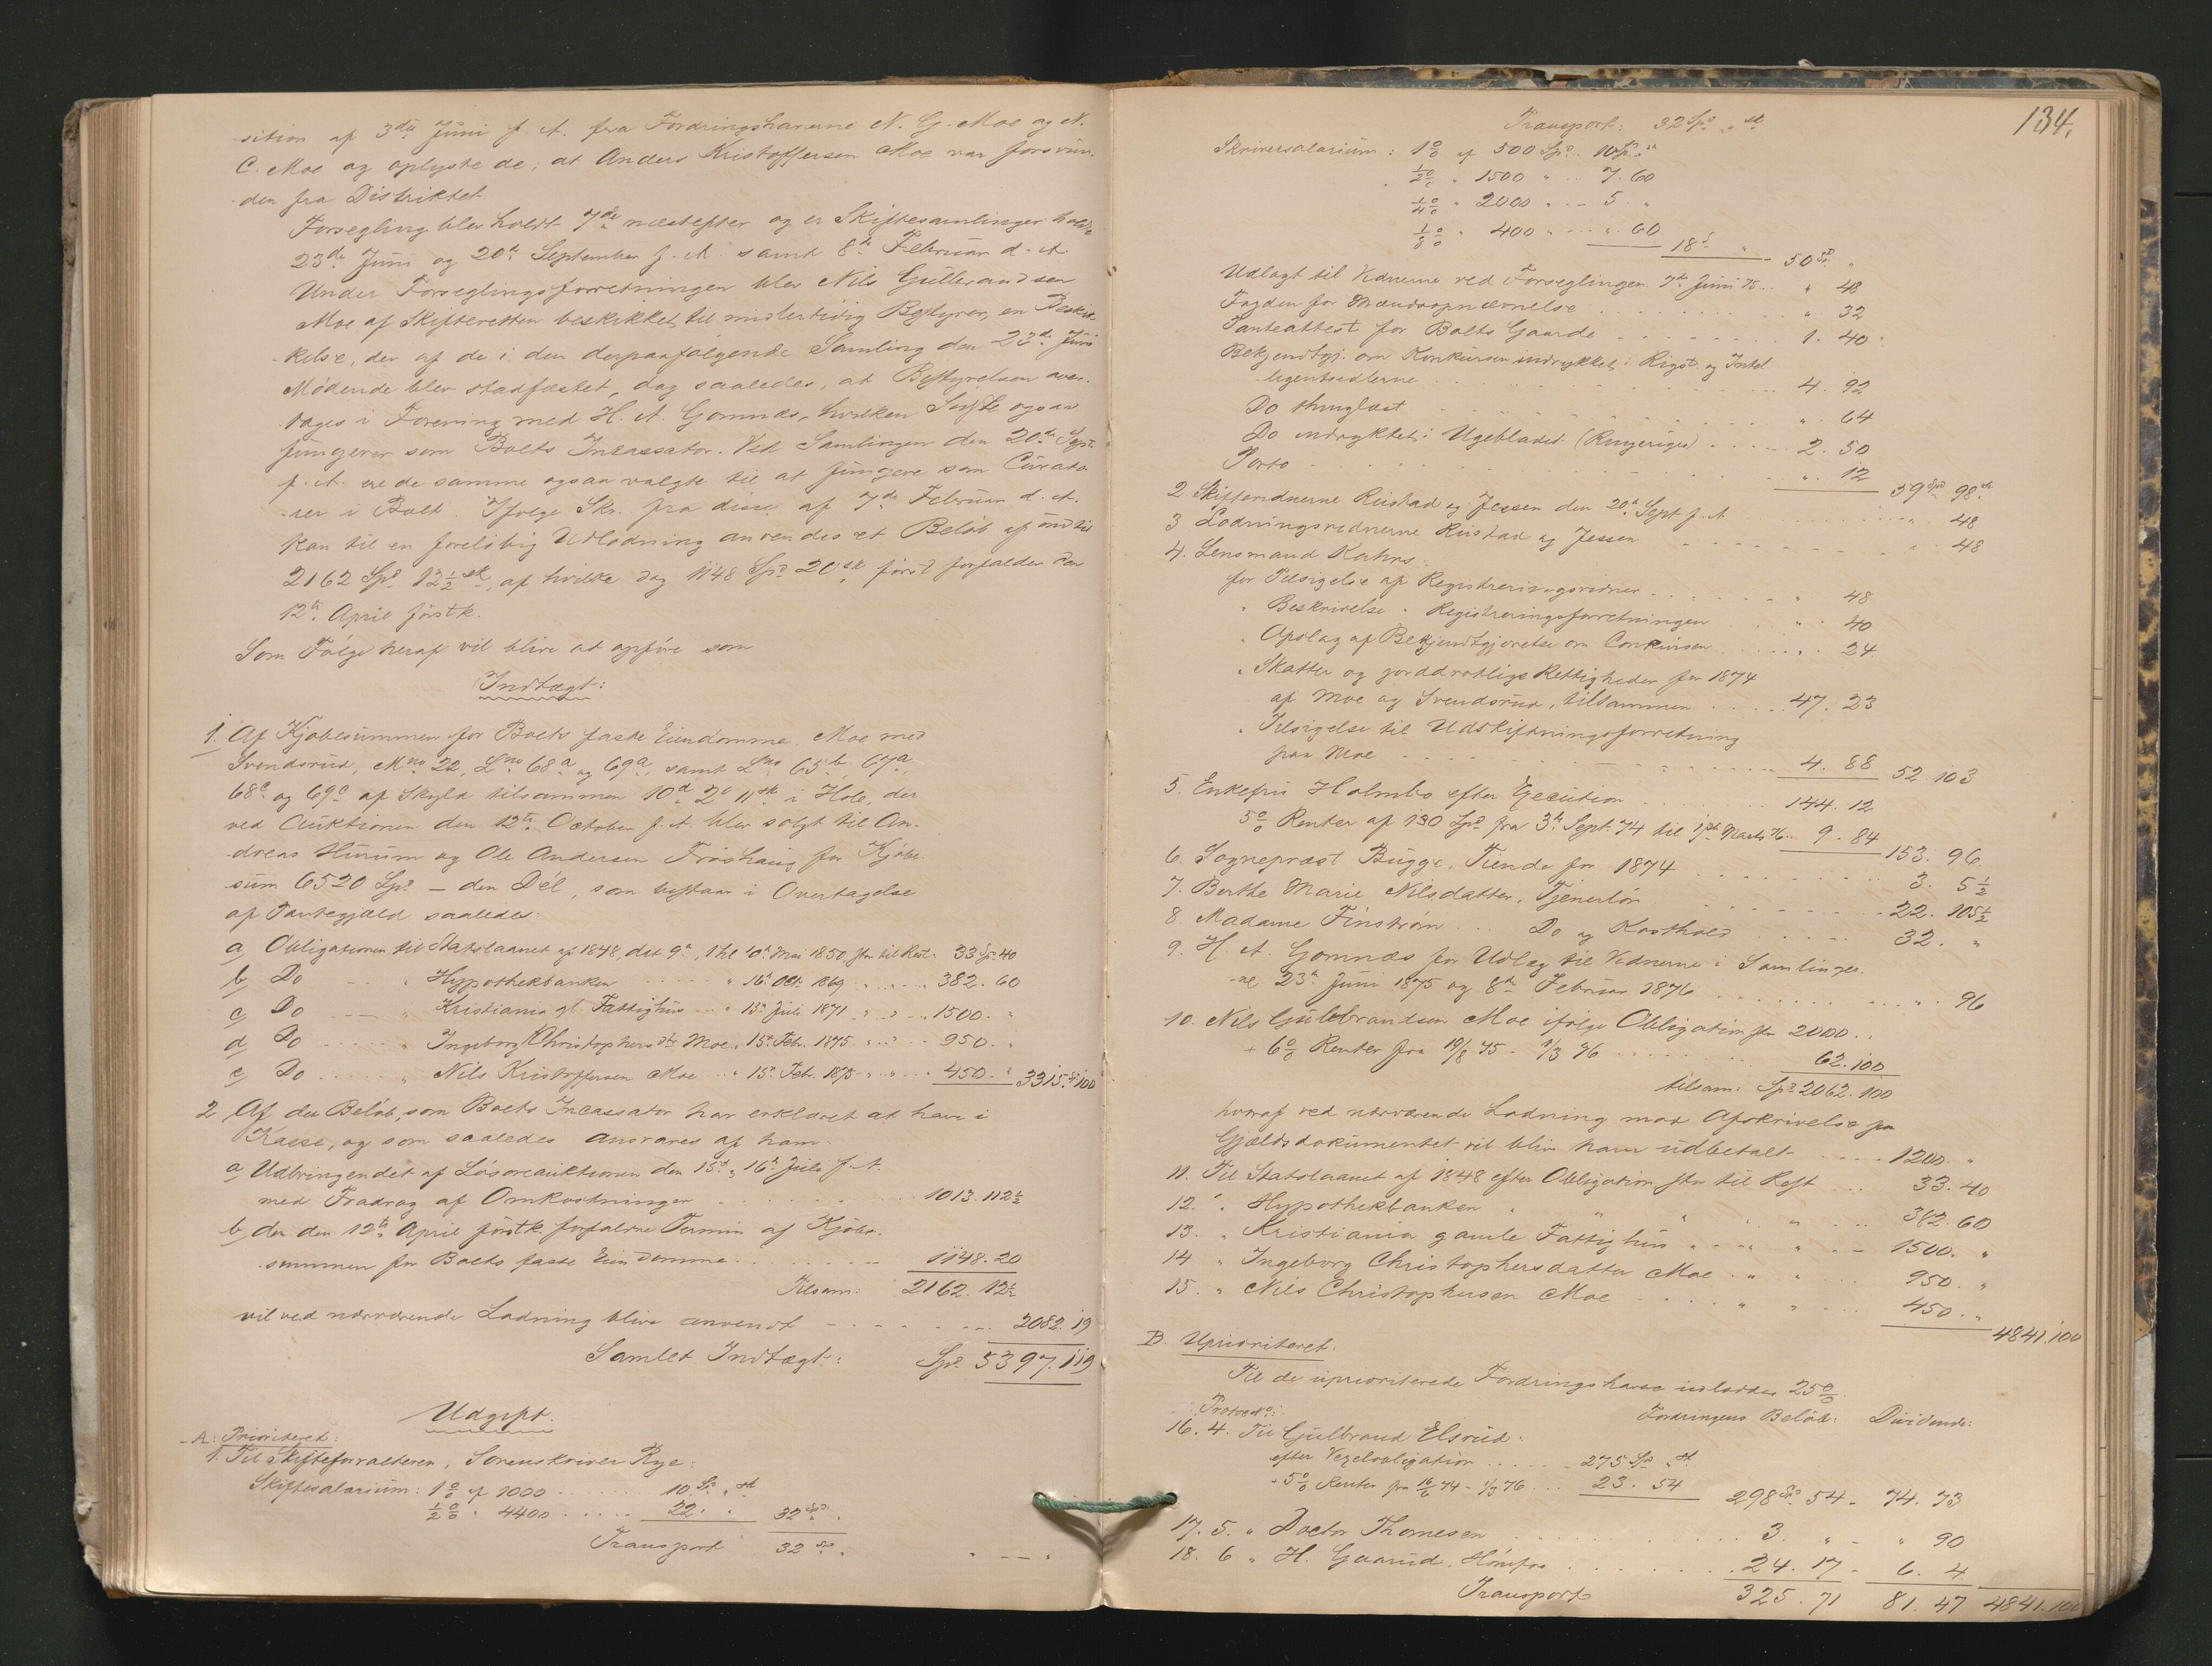 sition af 3die Juni f. A. fra Fordringshaverne N. G. Moe og N.
C. Moe og oplyste de, at Anders Kristoffersen Moe var forsvun-
den fra Distriktet.
Forsegling blev holdt 7de næstefter og er Skiftesamlinger holdt
23de Juni og 20de September f. A. samt 8de Februar d. A.
Under Forseglingsforretningen blev Nils Gulbrandsen
Moe af Skifteretten beskikket til midlertidig Bestyrer, en Beskik-
kelse, der af de i den derpaafølgende Samling den 23de Juni
Mødende blev stadfæstet, dog saaledes, at Bestyrelsen over-
tages i Forening med H. A. Gomnæs, hvilken Sidste ogsaa
fungerer som Boets Incassator. Ved Samlingen den 20de Sept.
f. A. ere de samme ogsaa valgte til at fungere som Curato-
rer i Boet. Ifølge Skr. fra disse af 7de Februar d. A.
kan til en foreløbig Udlodning anvendes et Beløb af indtil
2162 Spd 12½ sk, af hvilke dog 1148 Spd 20 sk først forfalder den
12te April førstk.
Som Følge heraf vil blive at opføre som
Indtægt:
1. Af Kjøbesummen for Boets faste Eiendomme Moe med
Svendsrud, Mno 22, Lno 68a og 69a, samt Lno 65b, 67a,
68c og 69c af Skyld tilsammen 10d 2o 11sk i Hole, der
ved Auktionen den 12te October f. A. blev solgt til An-
dreas Hurum og Ole Andersen Frøshaug for Kjøbe-
sum 6520 Spd – den Del, som bestaar i Overtagelse
af Pantegjæld saaledes:
a, Obligationen til Statslaanet af 1848, dat 9de, thl 10de Mai 1850, stor til Rest. 33 Sp. 40
b, Do " Hypothekbanken " 16de Oct. 1869 " 382. 60
c, Do " Kristiania gl. Fattighus " 13de Juli 1871 " 1500. "
d, Do " Ingeborg Christophersdtr Moe " 15de Febr. 1875 " 950. "
e, Do " Nils Kristoffersen Moe " 15de Febr. 1875 " 450. " 3315. Sp 100
2, Af det Beløb, som Boets Incassator har erklæret at have i
Kasse, og som saaledes ansvares af ham:
a, Udbringendet af Løsøreauktionen den 15de, 16de Juli f. A.
med Fradrag af Omkostninger 1013. 112½
b, den den 12te April førstk. forfaldne Termin af Kjøbe-
summen for Boets faste Eiendomme 1148. 20
Tilsam: 2162. 12½
vil ved nærværende Lodning blive anvendt 2082. 19
Samlet Indtægt: Spd 5397. 119
Udgift.
A: Prioriteret:
1. Til Skifteforvalteren, Sorenskriver Rye:
Skiftesalarium: 1% af 1000 10 Spd " sk
½% " 4400 22. " 32 Spd "
Transport 32 Spd "
134.
Transport: 32 Spd " sk
Skriversalarium: 1% af 500 Spd 10 Sp. "
½% " 1500 " 7. 60
¼% " 2000 " 5. "
⅛% " 400 " ". 60
18 " 50 Sp "
Udlagt til Vidnerne ved Forseglingen 7de Juni 75 " 48
Fogden for Mændsopnævnelse " 32
Panteattest for Boets Gaarde 1. 40
Bekjendtgj. om Konkursen indrykket i Rigst. og Intel-
ligentssedlerne 4. 92
Do thinglæst " 64
Do indrykket i Ugebladet (Ringeriges) 2. 50
Porto " 12 59 Spd 98 sk
2. Skiftevidnerne Rustad og Jessen den 20de Sept. f. A. " 48
3. Lodningsvidnerne Rustad og Jessen " 48
4. Lensmand Kahrs:
for Tilsigelse af Registreringsvidner " 48
" Beskrivelse " Registreringsforretningen " 40
" Opslag af Bekjendtgjørelse om Conkursen " 24
" Skatter og jorddrotlige Rettigheder for 1874
af Moe og Svendsrud, tilsammen 47. 23
" Tilsigelse til Udskiftningsforretning
paa Moe 4. 88 52. 103
5. Enkefru Holmbo efter Execution 144. 12
5% Renter af 130 Spd fra 3de Sept. 74 til 1ste Marts 76 9. 84 153. 96
6. Sognepræst Bugge, Tiende for 1874 3. 5½
7. Berthe Marie Nilsdatter, Tjenerløn 22. 105½
8. Madame Finstrøm Do og Kosthold 32. "
9. H. A. Gomnæs for Udlæg til Vidnerne i Samlinger-
ne 23de Juni 1875 og 8de Februar 1876 " 96
10. Nils Gulbrandsen Moe ifølge Obligation stor 2000 "
+ 6% Renter fra 19/8 75 - 1/3 76 62. 100
tilsam: Spd 2062. 100
hvoraf ved nærværende Lodning mod Afskrivelse paa
Gjældsdokumentet vil blive ham udbetalt 1200. "
11. Til Statslaanet af 1848 efter Obligation stor til Rest 33. 40
12. " Hypothekbanken " " " " 382. 60
13. " Kristiania gamle Fattighus " " " 1500. "
14 " Ingeborg Christophersdatter Moe " " 950. "
15. " Nils Christophersen Moe " " 450. "
4841. 100
B. Uprioriteret:
Til de uprioriterede Fordringshavere udloddes 25%.
Protoc No: Fordringens Beløb: Dividende:
16. 4. Til Gulbrand Elsrud:
efter Vexelobligation 275 Spd " sk
+ 5% Renter fra 16/6 74 - 1/3 76 23. 54 298 Spd 54 - 74. 73
17. 5. " Doctor Thomesen 3. " - " 90
18. 6 " H. Gaarud, Hønefos 24. 17 - 6. 4
Transport 325. 71 81. 47 4841. 100